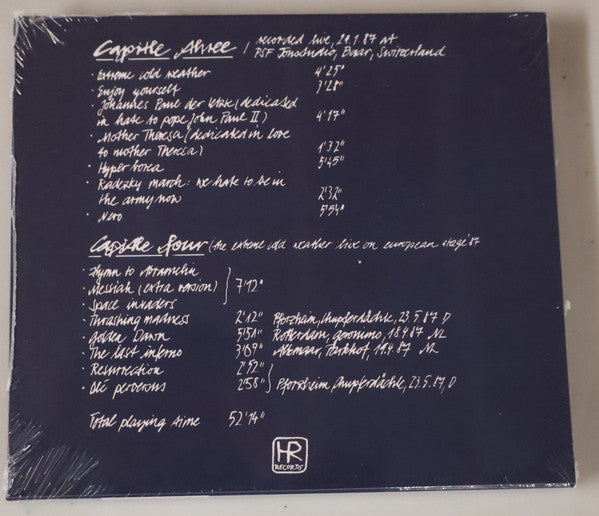 Capitle three / recorded live, 24.1.87 at
PSF Tonstudio, Baar, Switzerland
· Extreme cold weather 4'25"
· Enjoy yourself 3'28"
· Johannes Paul der letzte (dedicated
in hate to pope John Paul II) 4'17"
· Mother Theresa (dedicated in love
to mother Theresa) 1'32"
· Hyper borea 5'45"
· Radezky march: we hate to be in
the army now 2'32"
· Nero 5'54"
Capitle four (the extreme cold weather live on european stage '87
· Hymn to Abramelin
· Messiah (extra version) 7'12"
· Space invaders
· Thrashing madness 2'12" Pforzheim, 23.5.87 D
· Golden Dawn 5'51" Rotterdam, geronimo, 18.4.87 NL
· The last inferno 3'09" Alkmaar, Parkhof, 19.4.87 NL
· Resurrection 2'52"
· Olé perversus 2'58" Pforzheim, 23.5.87, D
Total playing time 52'14"
HR
RECORDS